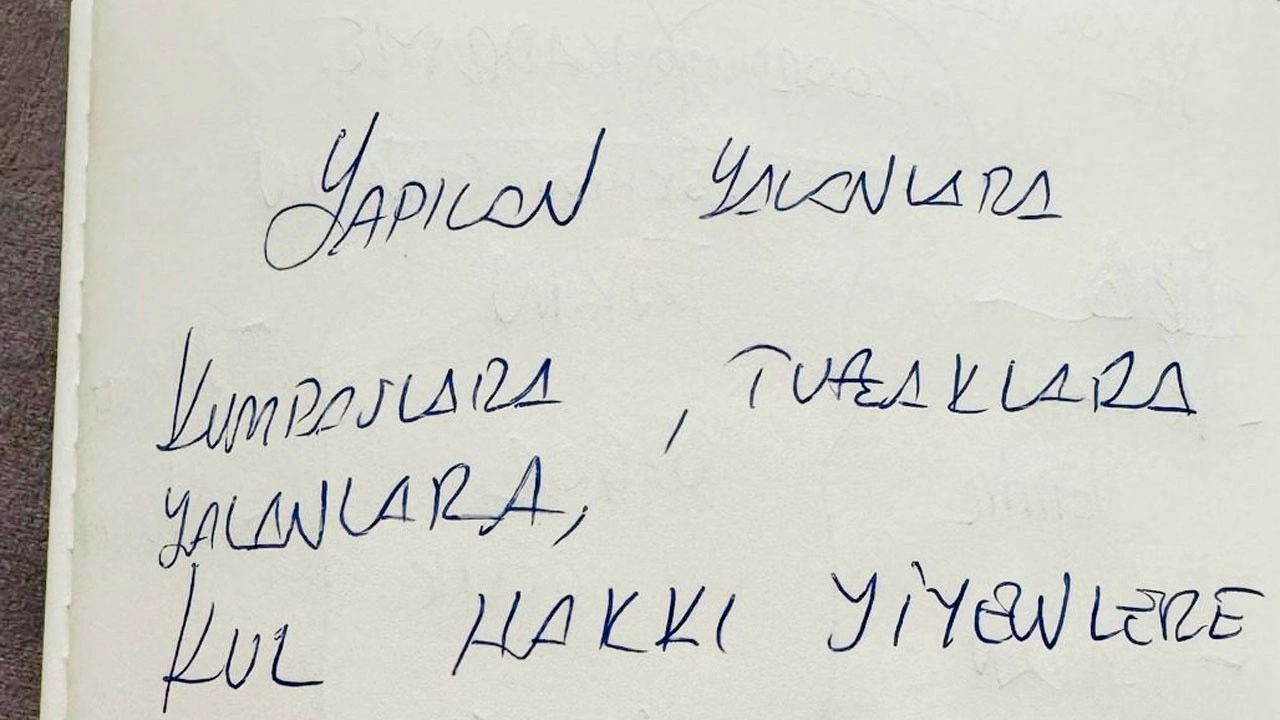 YAPILAN YALANLARA
KUMPASLARA, TUZAKLARA
YALANLARA,
KUL HAKKI YİYENLERE